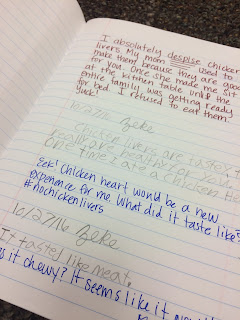 I absolutely despise chicken
livers. My mom used to
make them because they are good
for you. Once she made me sit
at the kitchen table until the
entire family was getting ready
for bed. I refused to eat them.
Yuck!
10/27/16 Zeke
Chicken livers are tasty.
really are healthy for you.
One time I ate a chicken He
Eek! Chicken heart would be a new
experience for me. What did it taste like?
#nochickenlivers
10/27/16 Zeke
It tasted like meat.
s it chewy? It seems like it